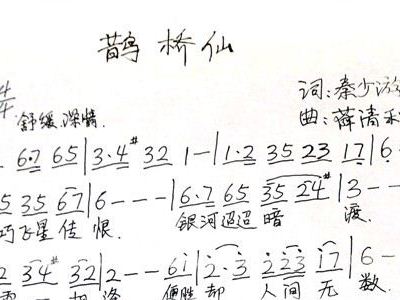 鹊桥仙
4/4
舒缓.深情.
词:秦少游
曲:薛清
6·7 65|3·4# 32 1—|1·2 35 23 17|6·
5 35 67|6---|6·7 65 35 24#|3--
巧飞星传恨. 银河迢迢暗 渡.
2 34# 32|2--61|2·3 223 17|6—
便胜却 人间无数.